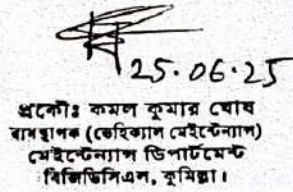 25.06.25
প্রকৌঃ কমল কুমার ঘোষ
ব্যবস্থাপক (ভেহিক্যাল মেইন্টেন্যান্স)
মেইন্টেন্যান্স ডিপার্টমেন্ট
বিজিডিসিএল, কুমিল্লা।